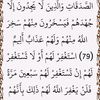 الصَّدَقَاتِ وَالَّذِينَ لَا يَجِدُونَ إِلَّا
جُهْدَهُمْ فَيَسْخَرُونَ مِنْهُمْ سَخِرَ
اللَّهُ مِنْهُمْ وَلَهُمْ عَذَابٌ أَلِيمٌ
(79) اسْتَغْفِرْ لَهُمْ أَوْ لَا تَسْتَغْفِرْ
لَهُمْ إِنْ تَسْتَغْفِرْ لَهُمْ سَبْعِينَ مَرَّةً
فَلَنْ يَغْفِرَ اللَّهُ لَهُمْ ذَلِكَ بِأَنَّهُمْ